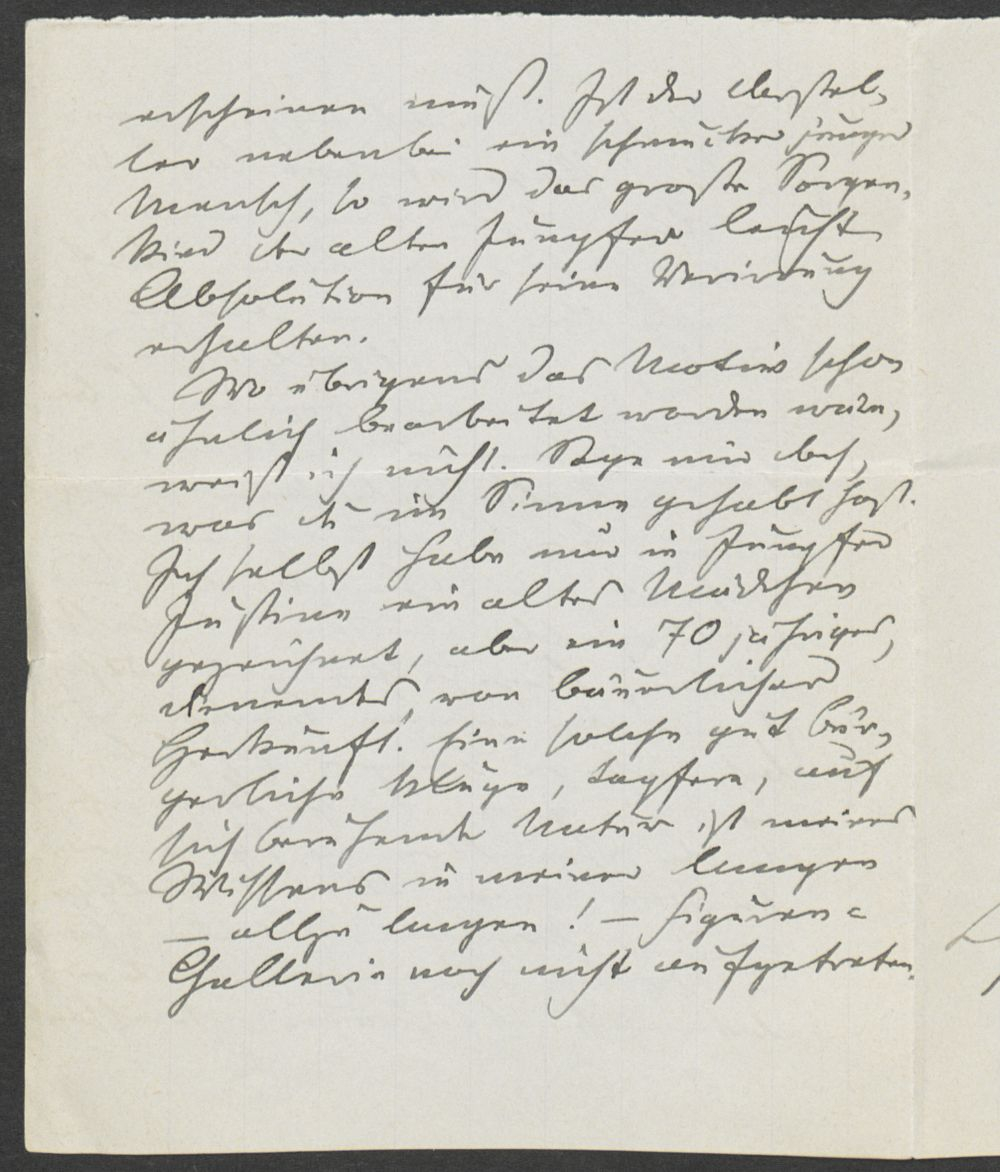 erscheinen muß. Ist der Darstel-
ler nebenbei ein schmucker junger
Mensch, so wird das große Sorgen-
kind der alten Jungfer leicht
Absolution für seine Verirrung
erhalten.
Wo übrigens das Motiv schon
ähnlich bearbeitet worden wäre,
weiß ich nicht. Sage mir doch,
was du im Sinne gehabt hast.
Ich selbst habe nur in Jungfer
Justine ein altes Mädchen
gezeichnet, aber ein 70 jähriges,
von bäuerlicher
Herkunft. Eine solche gut bür-
gerliche kluge, tapfere, auf
sich beruhende Natur ist meines
Wissens in meiner langen
– allzu langen! – Figuren=
Gallerie noch nicht aufgetreten.